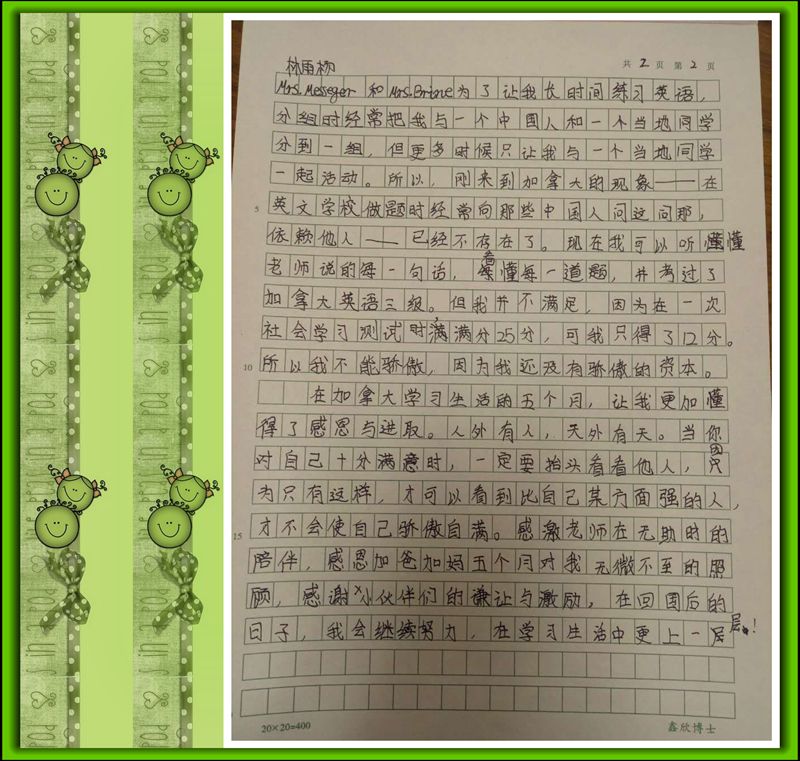 共 2 页 第 2 页
林雨杨
Mrs. Messeger 和 Mrs. Brine 为了让我长时间练习英语，
分组时经常把我与一个中国人和一个当地同学
分到一组，但更多时候只让我与一个当地同学
一起活动。所以，刚来到加拿大的现象——在
5 英文学校做题时经常向那些中国人问这问那，
依赖他人——已经不存在了。现在我可以听懂
老师说的每一句话，看懂每一道题，并考过了
加拿大英语三级。但我并不满足，因为在一次
社会学习测试时，满分25分，可我只得了12分。
10 所以我不能骄傲，因为我还没有骄傲的资本。
在加拿大学习生活的五个月，让我更加懂
得了感恩与进取。人外有人，天外有天。当你
对自己十分满意时，一定要抬头看看他人，因
为只有这样，才可以看到比自己某方面强的人，
15 才不会使自己骄傲自满。感激老师在无助时的
陪伴，感恩加爸加妈五个月对我无微不至的照
顾，感谢小伙伴们的谦让与激励，在回国后的
日子，我会继续努力，在学习生活中更上一层！
20×20=400
鑫欣博士